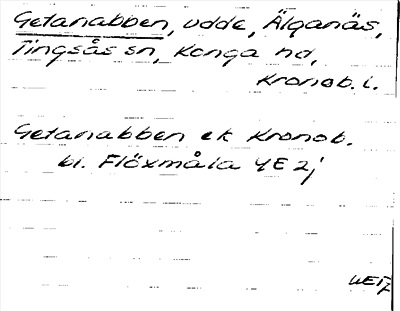 Getanabben, udde, Älganäs,
Tingsås sn, Konga hd,
Kronob. l.
Getanabben ek Kronob.
bl. Flöxmåla 4E 2j